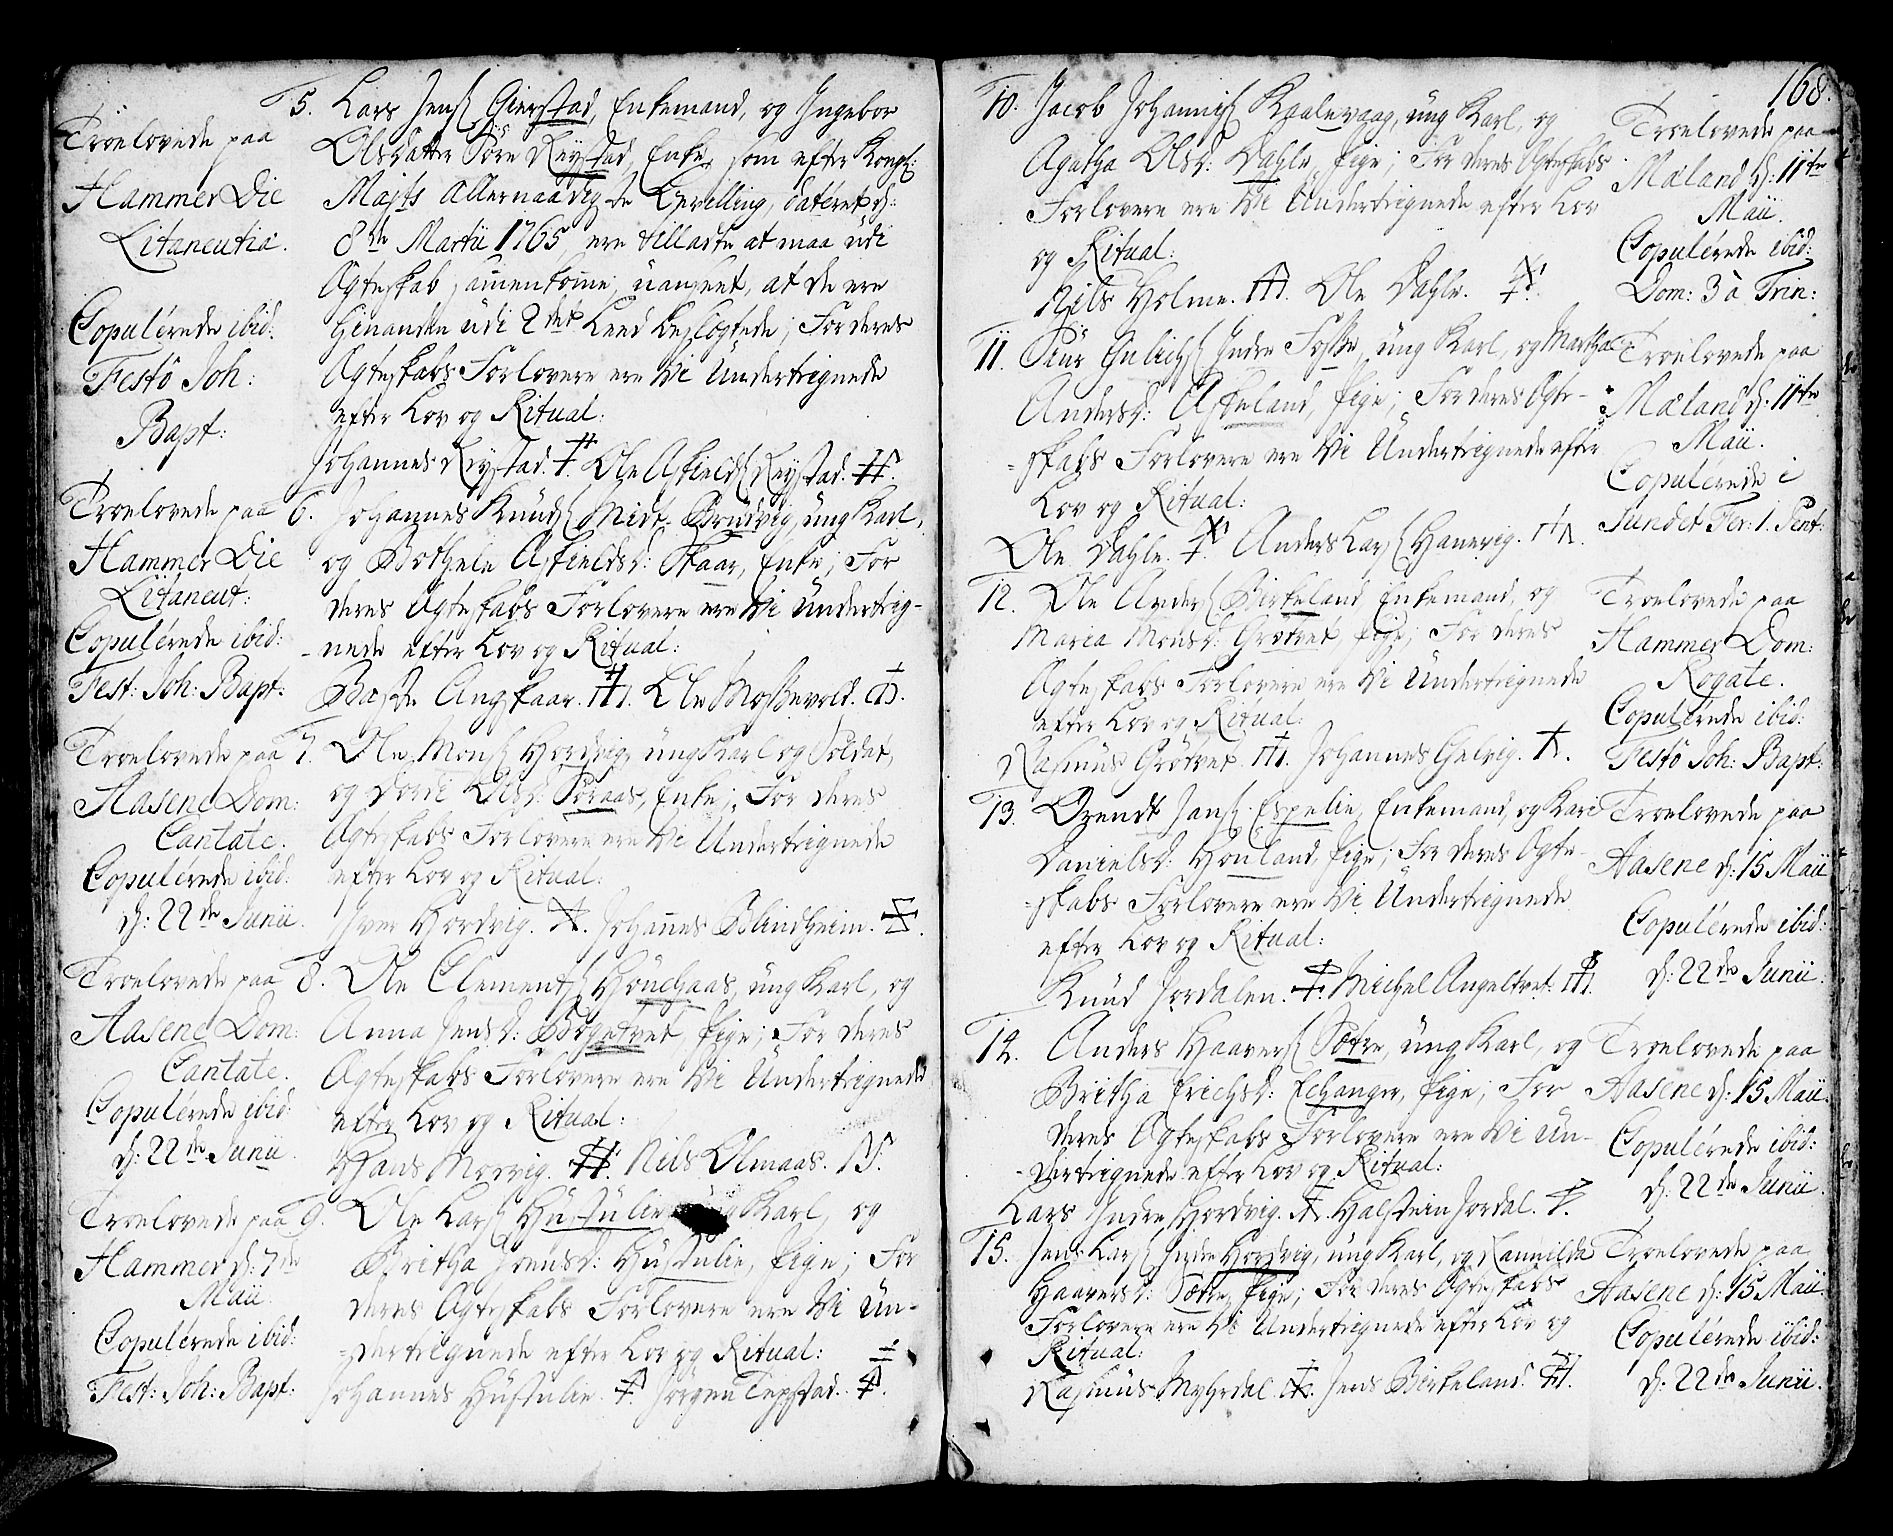 Troelovede paa
Hammer Die
Litaneutia.
Copulérede ibid:
Festo Joh:
Bapt:
5. Lars Jens: Gierstad, Enkemand, og Ingebor
Olsdatter Søre Reystad, Enke, som efter Kongl:
Majts Allernaadigste Bevilling, datéret d:
8de Martii 1765 ere tilladte at maa udi
Ægteskab sammenkomme, uanseet, at de ere
hinanden udi 2det Leed beslægtede; For deres
Ægteskabs Forlovere ere Vi Undertegnede
efter Lov og Ritual:
Johannes Reystad. Ole Askields: Reystad.
Troelovede paa
Hammer Die
Litaneut:
Copulérede ibid:
Fest: Joh: Bapt:
6. Johannes Knuds: Midt-Brudvig, ung Karl,
og Bothele Askieldsd: Skaar, Enke; For
deres Ægteskabs Forlovere ere Vi Underteg-
-nede efter Lov og Ritual:
Baste Angskaar. Ole Mossevold.
Troelovede paa
Aasene Dom:
Cantate.
Copulérede ibid:
d: 22de Junii.
7. Ole Mons: Hordvig, ung Karl og Soldat,
og Dordi Olsd: Søraas, Enke; For deres
Ægteskabs Forlovere ere Vi Undertegnede
efter Lov og Ritual:
Iver Hordvig. Johannes Blindheim.
Troelovede paa
Aasene Dom:
Cantate.
Copulérede ibid:
d: 22de Junii.
8. Ole Clements: Houchaas, ung Karl, og
Anna Jensd: Bøgetvet Pige; For deres
Ægteskabs Forlovere ere Vi Undertegnede
efter Lov og Ritual:
Hans Morvig. Nils Olmaas.
Troelovede paa
Hammer d: 7de
Maii
Copulérede ibid:
Fest: Joh: Bapt:
9. Ole Lars: Husdulie ung Karl, og
Britha Ivensd: Husdulie, Pige; For
deres Ægteskabs Forlovere ere Vi Un-
-dertegnede efter Lov og Ritual:
Johannes Husdulie. Jørgen Tepstad.
168.
10. Jacob Johannis: Kaalevaag, ung Karl, og
Agatha Olsd: Dahle, Pige; For deres Ægteskabs
Forlovere ere Vi Undertegnede efter Lov
og Ritual:
Nils Holme. Ole Dahle.
Troelovede paa
Mæland d: 11te
Maii.
Copulérede ibid:
Dom: 3 à Trin:
11. Siur Gulichs: Indre Fosse, ung Karl, og Martha
Andersd: Askeland, Pige; For deres Ægte-
-skabs Forlovere ere Vi Undertegnede efter
Lov og Ritual:
Ole Dahle. Anders Lars: Hanevig.
Troelovede paa
Mæland d: 11te
Maii.
Copulérede i
Sundet Fer: 1. Pent:
12. Ole Anders: Birkeland Enkemand, og
Maria Monsd: Grøtvet Pige; For deres
Ægteskabs Forlovere ere Vi Undertegnede
efter Lov og Ritual:
Rasmus Grøtvet. Johannes Gielvig.
Troelovede paa
Hammer Dom:
Rogate.
Copulérede ibid:
Festo Joh: Bapt:
13. Ørendt Jans: Espelie, Enkemand, og Kari
Danielsd: Houland, Pige; For deres Ægte-
-skabs Forlovere ere Vi Undertegnede
efter Lov og Ritual:
Knud Jordalen. Michel Angeltvet.
Troelovede paa
Aasene d: 15 Maii
Copulérede ibid:
d: 22de Junii.
14. Anders Haavers: Sætre, ung Karl, og
Britha Erichsd: Echanger, Pige; For
deres Ægteskabs Forlovere ere Vi Un-
-dertegnede efter Lov og Ritual:
Lars Indre Hordvig. Halstein Jordal.
Troelovede paa
Aasene d: 15 Maii.
Copulérede ibid:
d: 22de Junii.
15. Jens Lars: Indre Hordvig, ung Karl, og Rannilda
Haaversd: Sætre, Pige; For deres Ægteskabs
Forlovere ere Vi Undertegnede efter Lov og
Ritual:
Rasmus Myhrdal. Jens Birkeland.
Troelovede paa
Aasene d: 15 Maii.
Copulérede ibid:
d: 22de Junii.